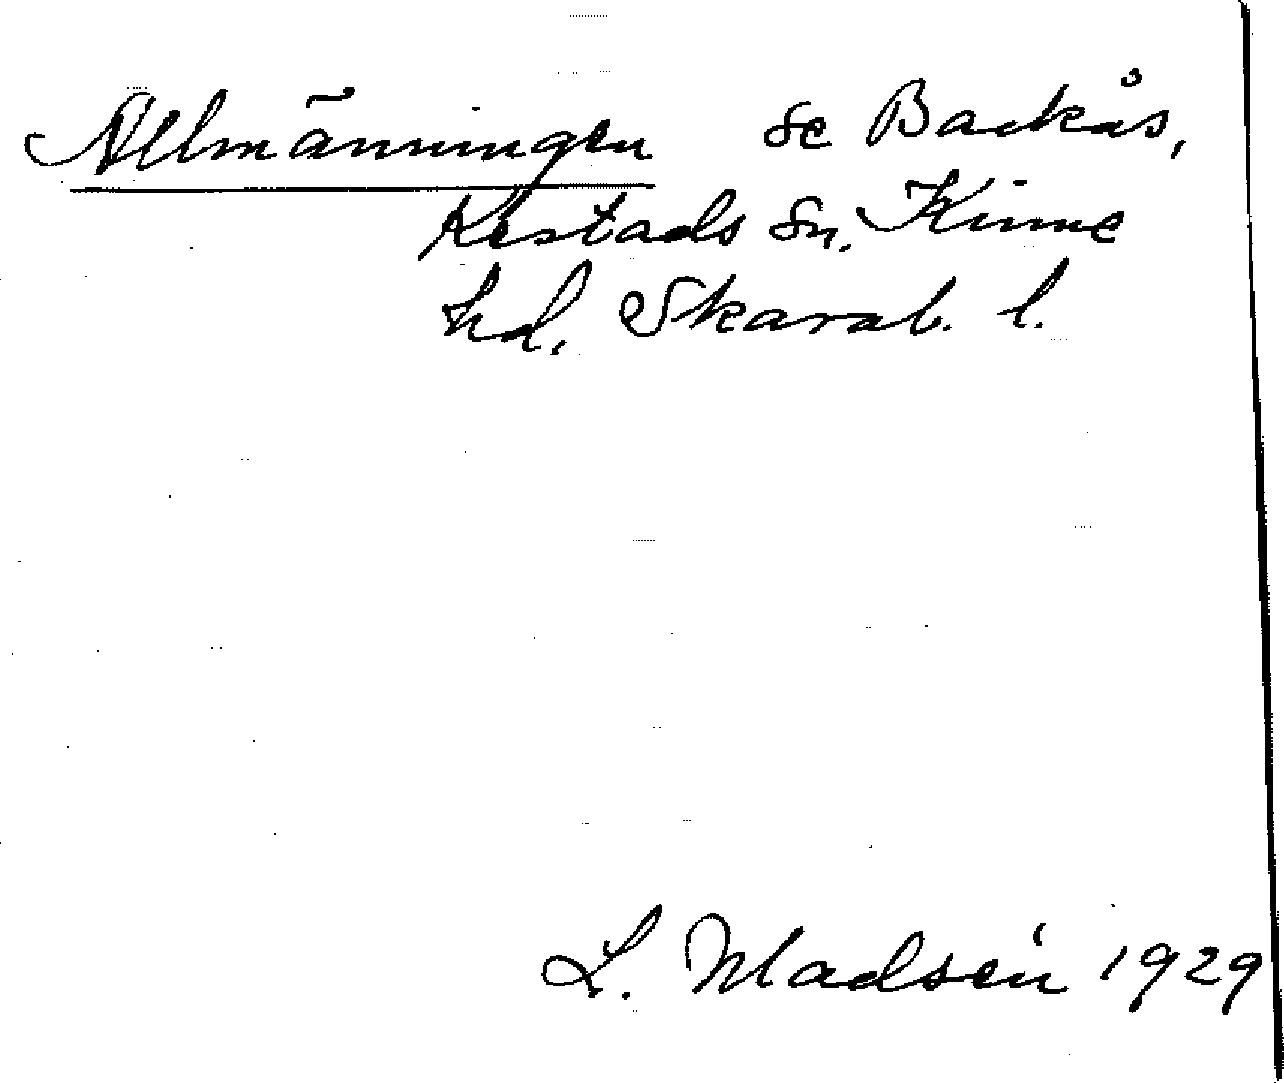 Allmänningen se Backås,
Kestads sn, Kinne
hd, Skarab. l.
L. Madsén 1929